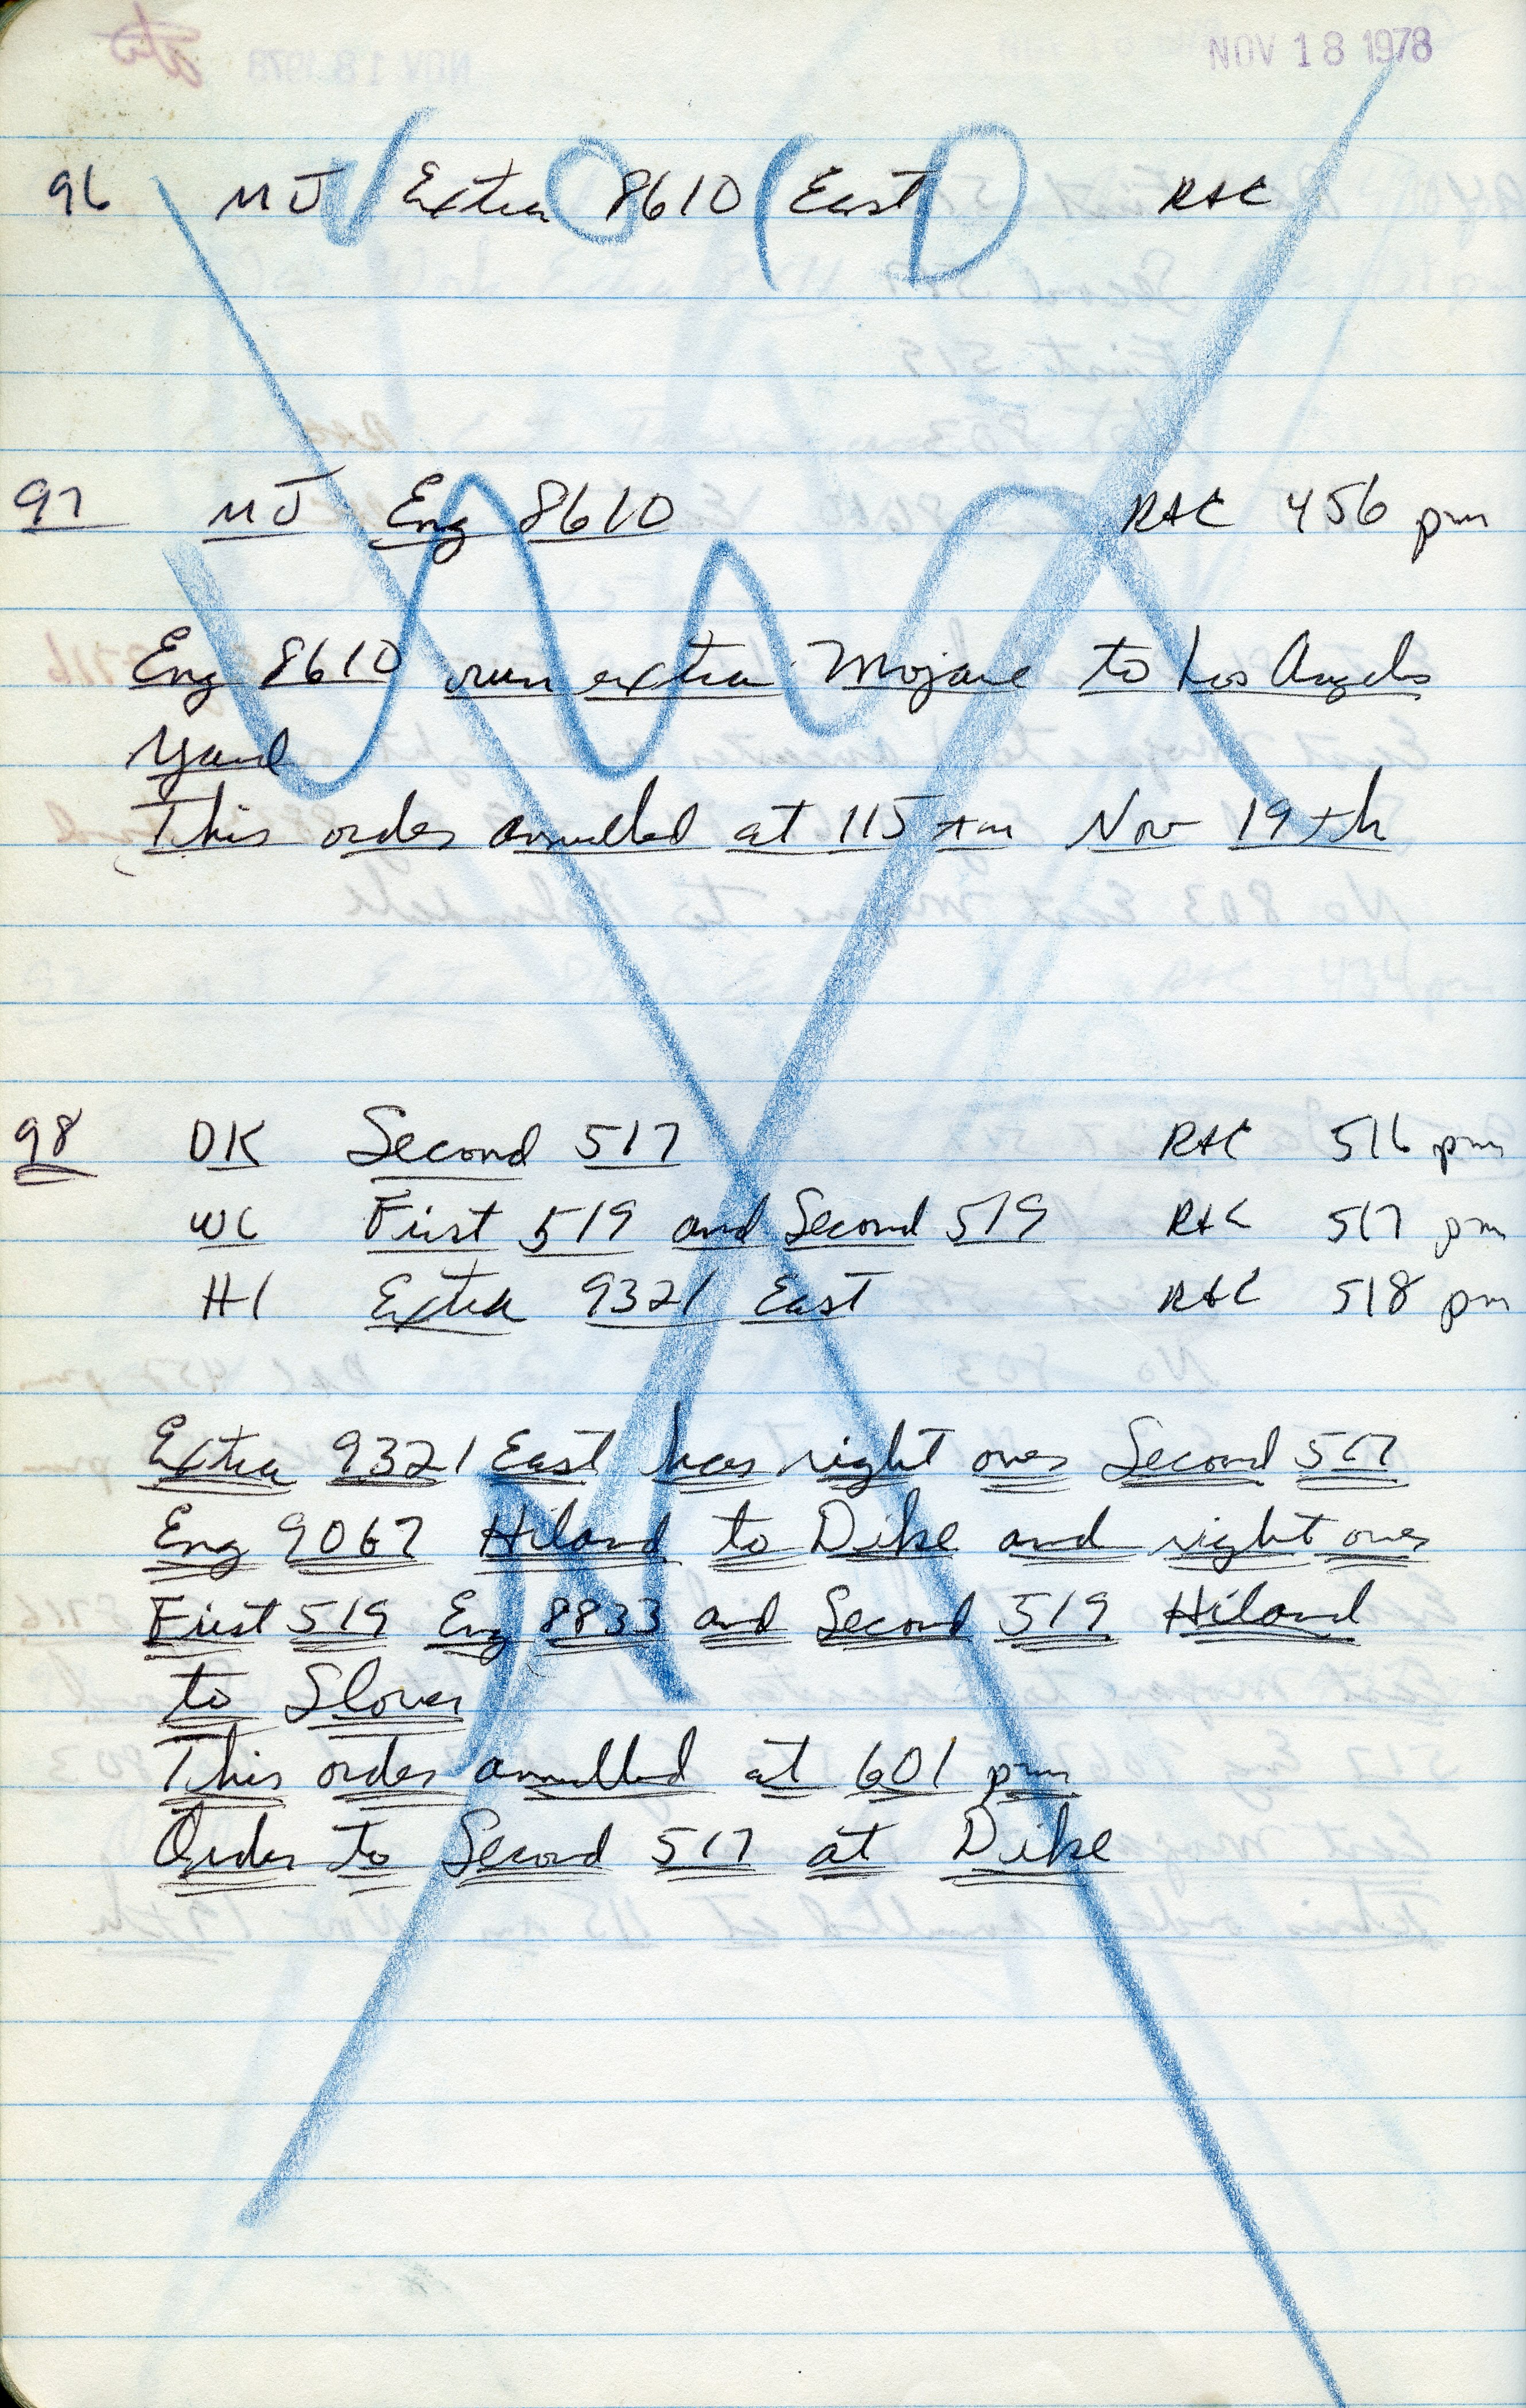 NOV 18 1978
96 MJ Extra 8610 East RAC
VOID
97 MJ Eng 8610 RAC 456 pm
Eng 8610 run extra Mojave to Los Angeles
Yard
This order annulled at 115 am Nov 19th
98 DK Second 517 RAC 516 pm
WC First 519 and Second 519 RAC 517 pm
HI Extra 9321 East RAC 518 pm
Extra 9321 East has right over Second 517
Eng 9067 Hiland to Dike and right over
First 519 Eng 8833 and Second 519 Hiland
to Slover
This order annulled at 601 pm
Order to Second 517 at Dike